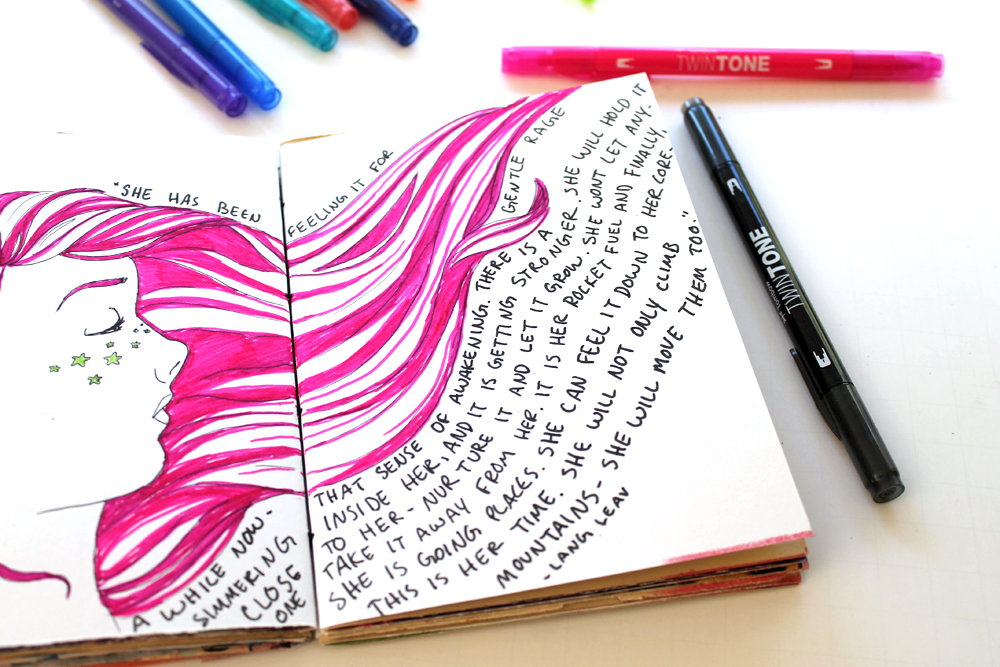 TWINTONE
TWINTONE
"SHE HAS BEEN FEELING IT FOR
A WHILE NOW -
SIMMERING THAT SENSE OF AWAKENING. THERE IS A GENTLE RAGE
INSIDE HER, AND IT IS GETTING STRONGER. SHE WILL HOLD IT
CLOSE TO HER - NURTURE IT AND LET IT GROW. SHE WONT LET ANY-
ONE TAKE IT AWAY FROM HER. IT IS HER ROCKET FUEL AND FINALLY,
SHE IS GOING PLACES. SHE CAN FEEL IT DOWN TO HER CORE.
THIS IS HER TIME. SHE WILL NOT ONLY CLIMB
MOUNTAINS - SHE WILL MOVE THEM TOO."
- LANG LEAV